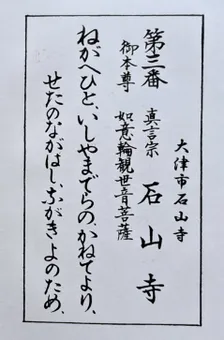 第三番
大津市石山寺
真言宗 石山寺
御本尊 如意輪観世音菩薩
ねがへひと、いしやまでらの、かねてより、
せたのながはし、ながきよのため、